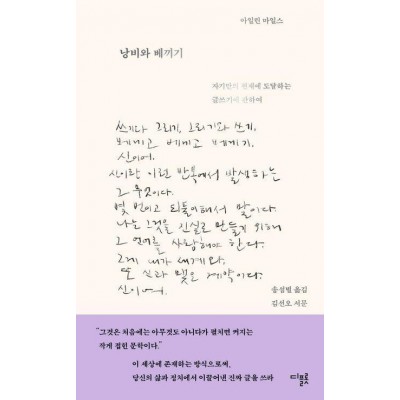 아일린 마일스
낭비와 베끼기
자기만의 현재에 도달하는
글쓰기에 관하여
쓰기다 그리기, 그리기와 쓰기,
베끼고 베끼고 베끼기.
신이여.
신이란 이런 반복에서 발생하는
그 무엇이다.
몇 번이고 되풀이해서 말이다.
나는 그것을 진실로 만들기 위해
그 언어를 사랍해야 한다.
그게 내가 세계와,
또 신과 맺은 계약이다.
신이여.
송섬별 옮김
김선오 서문
"그것은 처음에는 아무것도 아니다가 펼치면 커지는
작게 접힌 문학이다."
이 세상에 존재하는 방식으로써,
당신의 삶과 정치에서 이끌어낸 진짜 글을 쓰라
디플롯